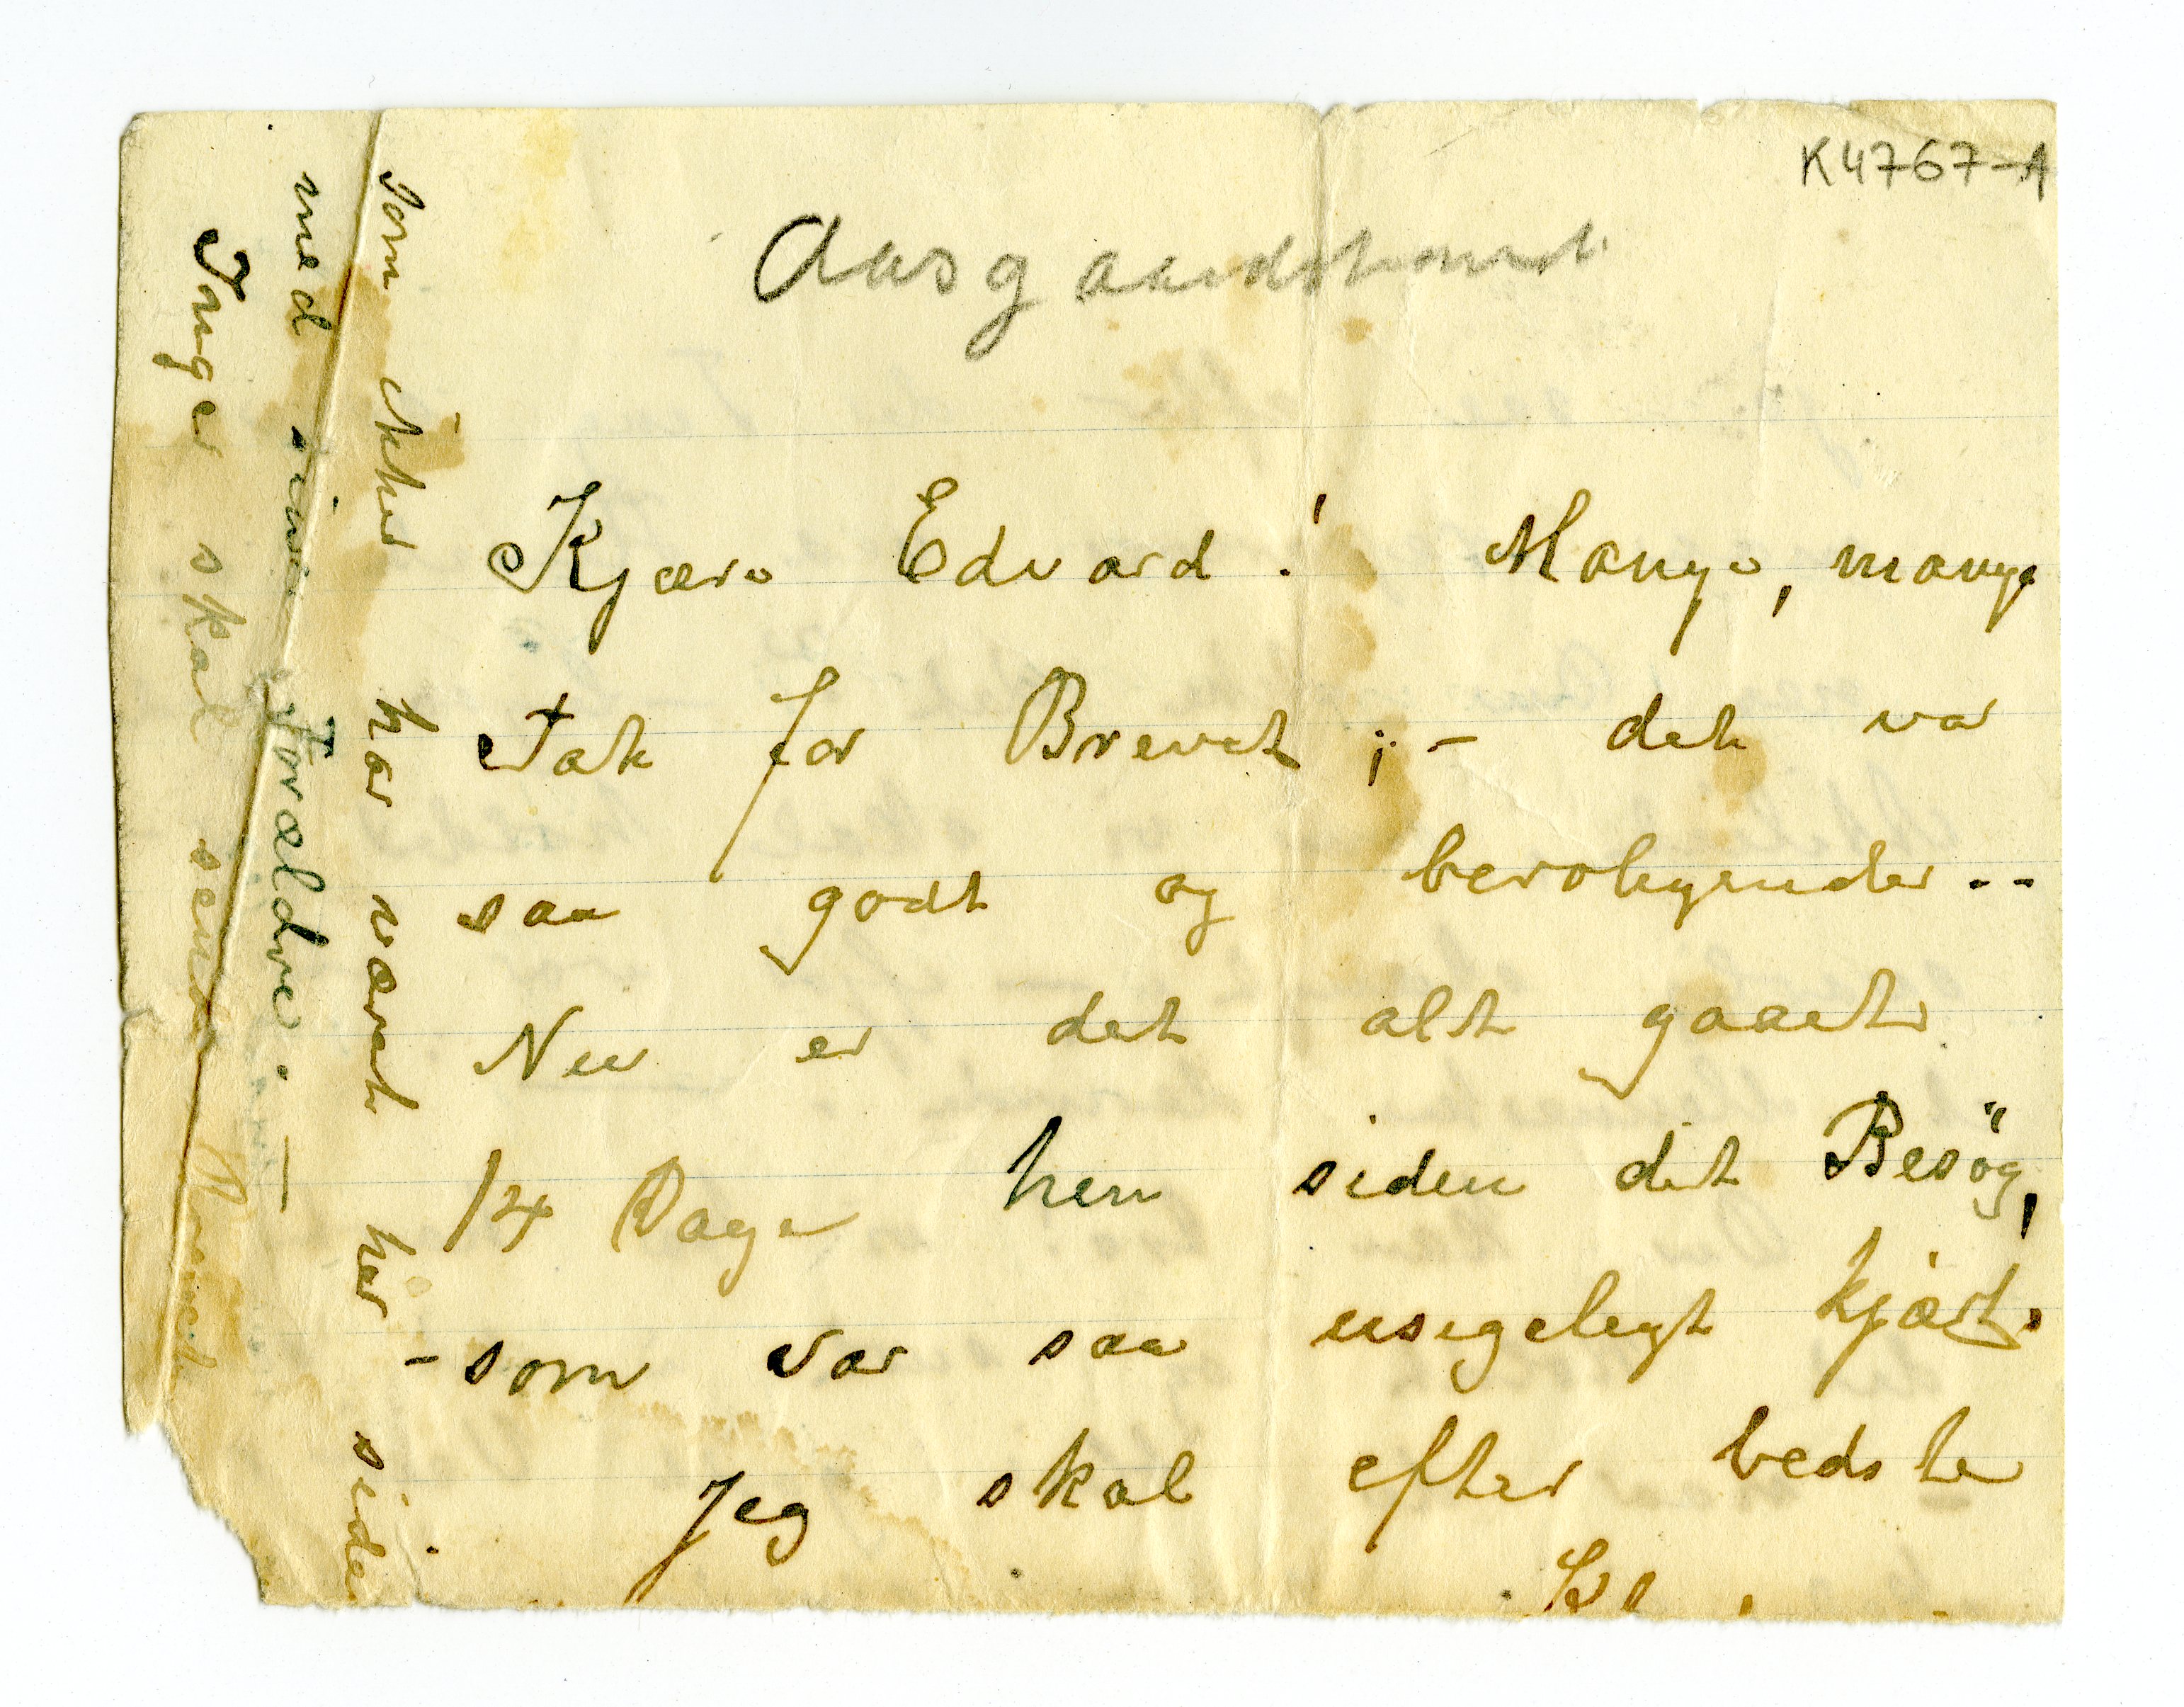 K4767-A
Aasgaardstrand
Kjære Edvard! Mange, mange
Tak for Brevet; - det var
saa godt og beroligende..
Nu er det alt gaaet
14 Dage hen siden dit Besøg,
- som var saa usigeligt kjært.
Jeg skal efter bedste
som ikke har været her siden
med sine Forældre. —
Inger skal sende Brevet